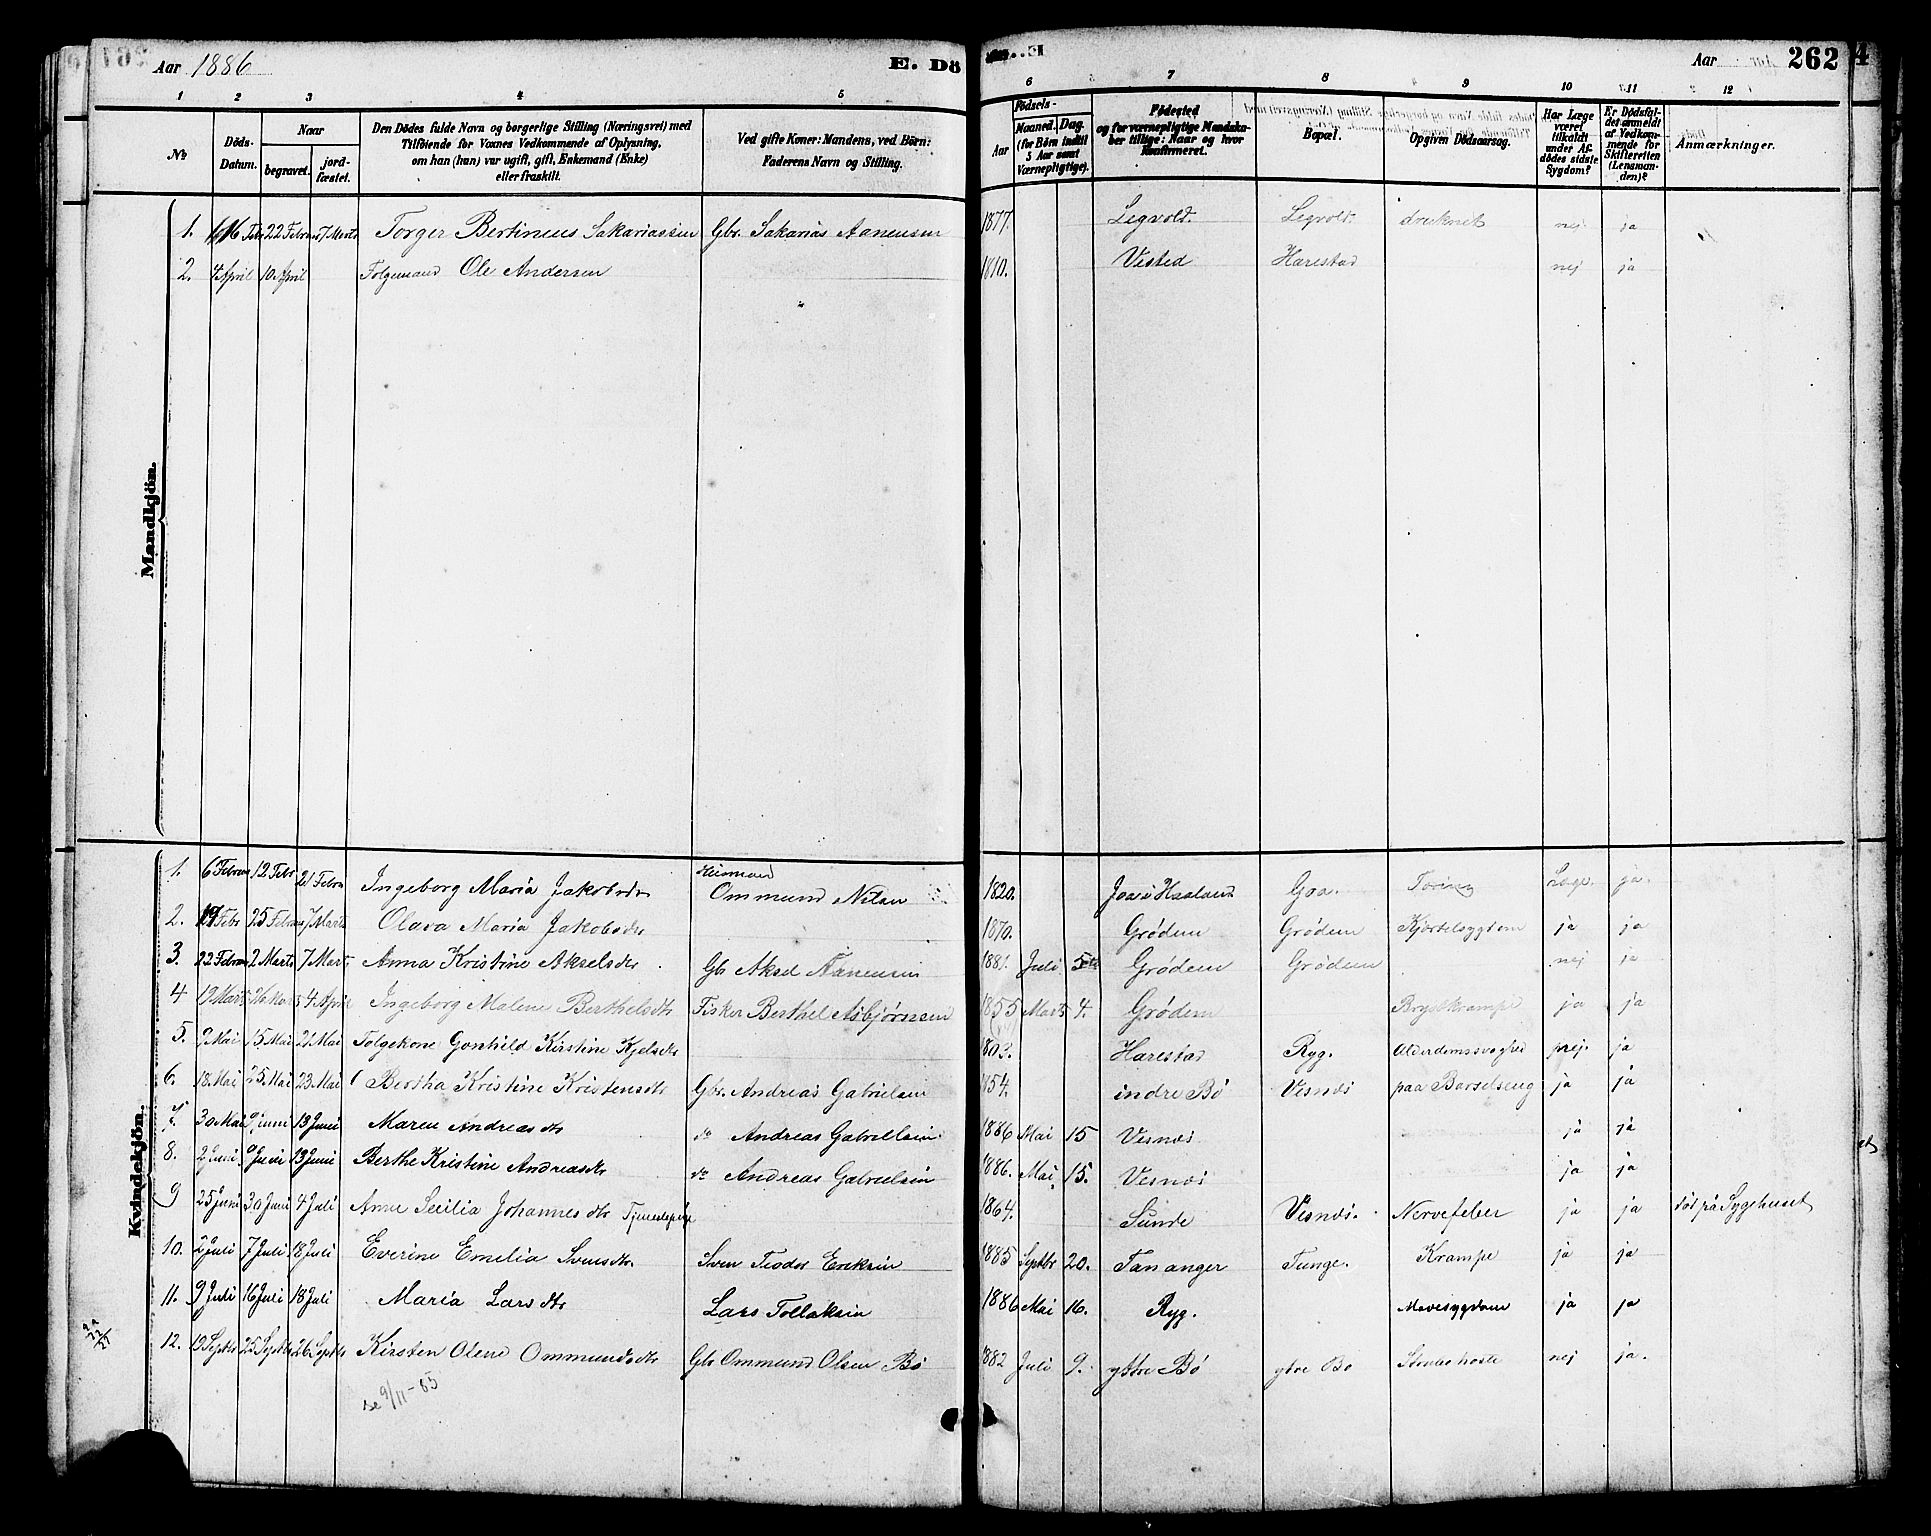 Aar 1886 E. Dö
Aar 262
1 2 3 4 5 6 7 8 9 10 11 12
No
Döds-Datum.
Naar
begravet.
jord-fæstet.
Den Dödes fulde Navn og borgerlige Stilling (Næringsvei) med
Tilföiende for Voxnes Vedkommende af Oplysning,
om han (hun) var ugift, gift, Enkemand (Enke)
eller fraskilt.
Ved gifte Koner: Mandens, ved Börn:
Faderens Navn og Stilling.
Födsels-
Aar
Maaned. Dag.
(for Börn indtil
5 Aar samt
Værnepligtige).
Födested
og for værnepligtige Mandska-
ber tillige: Naar og hvor
Konfirmeret.
Bopæl.
Opgiven Dödsaarsag.
Har Læge
været
tilkaldt
under Af-
dödes sidste
Sygdom?
Er Dödsfal-
det anmeldt
af Vedkom-
mende for
Skifteretten
(Lensman-
den)?
Anmærkninger.
Mandkjön.
1. 16 Febr 22 Februar 7 Marts Torger Bertineus Sakariassen Gbr. Sakarias Aanensen 1877. Legvold. Legvold. druknet nej ja
2. 4 April 10 April Folgemand Ole Andersen 1810. Visted Harestad nej ja
Kvindekjön.
1. 6 Februar 12 Febr 21 Febru Ingeborg Maria Jakobsdr Ommund 1820. Haaland Goa. ja.
2. 19 Febr 25 Februar 7 Marts Olava Maria Jakobsdr 1870. Grødem Grødem Kjertelsygdom ja ja
3. 22 Februar 2 Marts 7 Mart. Anna Kristine Akselsdr. Gb Aksel Aanensen 1881. Juli 5te Grødem Grødem nej ja
4 19 Marts 26 Mars 4 April Ingeborg Malene Berthelsdtr Fisker Berthel Asbjørnsen 1855 Marts 4. Grødem Brystkrampe ja ja
5. 9 Mai 15 Mai 21 Mai Folgekone Gonhild Kirstine Kjelsdr 1803. Harestad Ryg. Alderdomssvaghed nej. ja
6. 18. Mai 25. Mai 23. Mai Bertha Kristine Kristensdtr Gbr. Andreas Gabrielsen 1854. indre Bø Vesnæs paa Barselseng ja ja
7. 30 Mai 9 Juni 13 Juni Maren Andreasdtr do Andreas Gabrielsen 1886 Mai 15 Vesnæs ja ja
8. 2 Juni 9 Juni 13 Juni Berthe Kristine Andreasdr do Andreas Gabrielsen 1886. Mai 15. Vesnæs ja ja
9 25 Juni 30 Juni 4 Juli Anne Secilia Johannesdtr Tjenestepige 1864. Sunde Vesnæs. Nervefeber ja ja död på Sygehuset
10. 2 Juli 7 Juli 18 Juli Everine Emelia Svensdtr. Sven Teodor Eriksen 1885 Septbr 20. Tananger Tunge. Krampe ja ja
11. 9 Juli 16 Juli 18 Juli Maria Larsdtr Lars Tollaksen 1886 Mai 16. Ryg. Mavesygdom ja ja
12. 19 Septbr 25 Septbr 26 Septbr Kirsten Olene Ommundsdtr Gbr Ommund Olsen Bø 1882 Juli 9. ytre Bø ytre Bø Strubehoste nej ja.
se 9/11-85